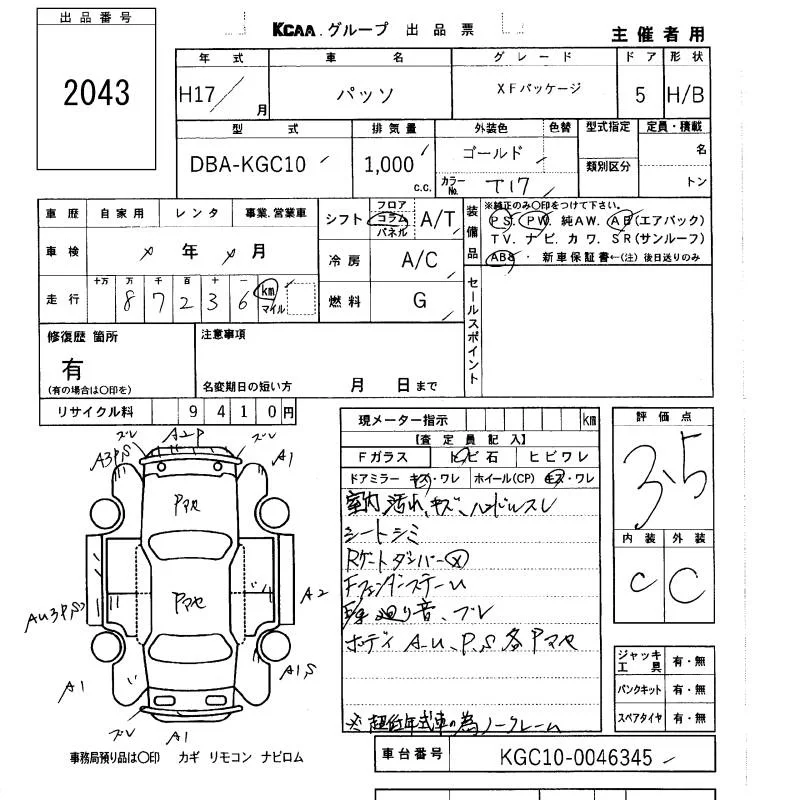 出品番号
2043
KCAA.グループ 出品票
主催者用
年式 車名 グレード ドア 形状
H17/ 月 パッソ XFパッケージ 5 H/B
型式 排気量 外装色 色替 型式指定 定員・積載
DBA-KGC10 1,000 c.c. ゴールド 名
カラーNo. T17 類別区分 トン
車歴 自家用 レンタ 事業.営業車
シフト フロア コラム パネル A/T
装備品 ※純正のみ〇印をつけて下さい。
PS. PW. 純AW. AB(エアバック)
TV. ナビ. カワ. SR(サンルーフ)
ABS. 新車保証書←(注) 後日送りのみ
車検 年 月
冷房 A/C
走行 十万 万 千 百 十 一
8 7 2 3 6 km マイル
燃料 G
セールスポイント
修復歴 箇所
有
(有の場合は〇印を)
注意事項
名変期日の短い方 月 日まで
リサイクル料 9410円
現メーター指示 km
【査定員記入】
Fガラス トビ石 ヒビワレ
ドアミラー キズ・ワレ ホイール(CP) キズ・ワレ
室内汚れ、キズ、ハンドルスレ
シートシミ
Rゲートダンパー
ブレ
ボディ A.U、P.S 各Pマセ
※超低年式車の為ノークレーム
評価点
3.5
内装 外装
C C
ジャッキ工具 有・無
パンクキット 有・無
スペアタイヤ 有・無
ブレ A2P ブレ
A3PS A1
Pマセ
Pマセ
AU3PS A2
A1 A1S
ブレ A1
事務局預り品は〇印 カギ リモコン ナビロム
車台番号 KGC10-0046345